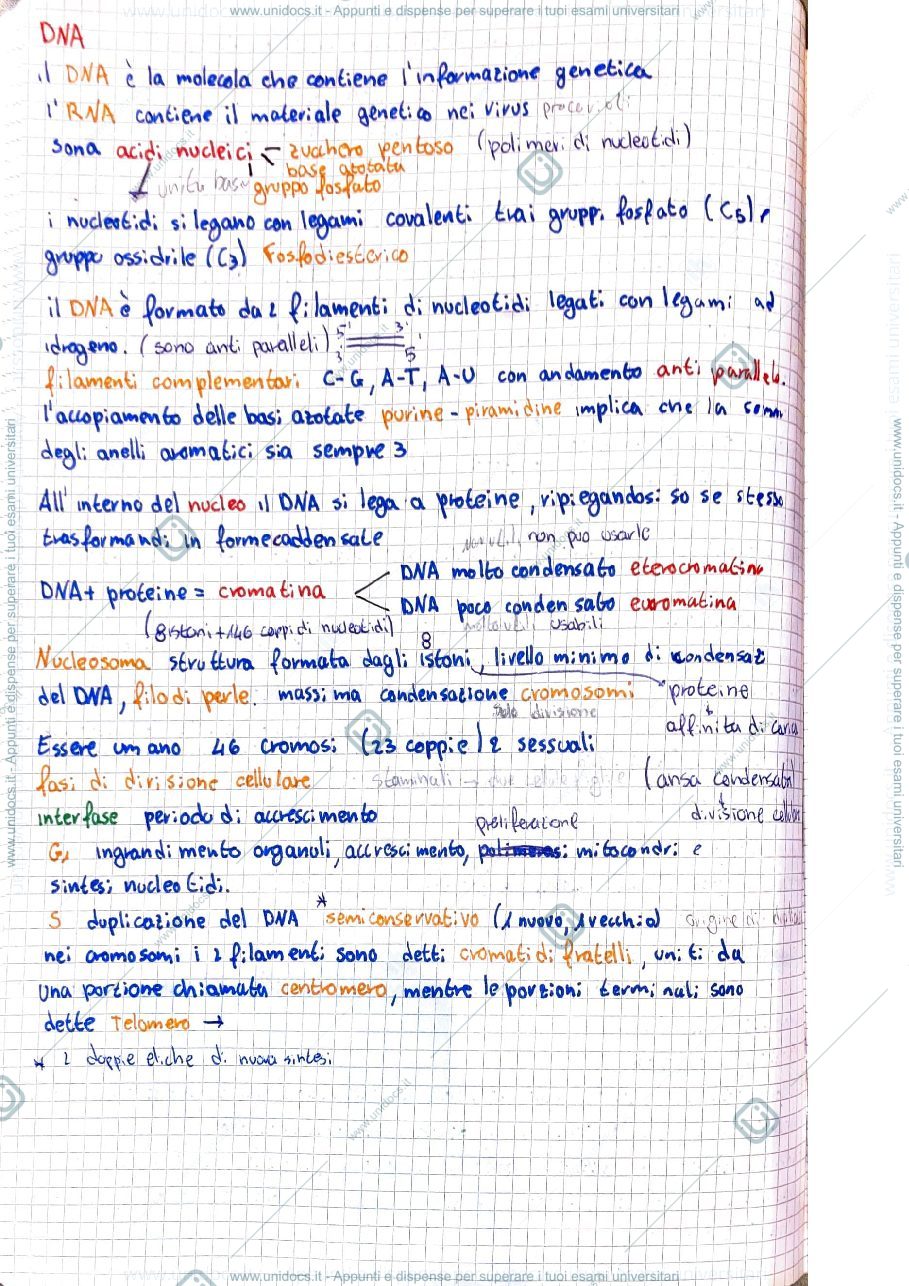 www.unidocs.it - Appunti e dispense per superare i tuoi esami universitari
DNA
il DNA è la molecola che contiene l'informazione genetica
l'RNA contiene il materiale genetico nei virus
sono acidi nucleici zucchero pentoso (polimeri di nucleotidi)
base azotata
unità base gruppo fosfato
i nucleotidi si legano con legami covalenti tra i gruppi fosfato (C5) e
gruppo ossidrile (C3) Fosfodiesterico
il DNA è formato da 2 filamenti di nucleotidi legati con legami ad
idrogeno. (sono anti paralleli) 5' 3'
3' 5'
filamenti complementari C-G, A-T, A-U con andamento anti parallelo.
l'accopiamento delle basi azotate purine - piramidine implica che la somma
degli anelli aromatici sia sempre 3
All'interno del nucleo il DNA si lega a proteine, ripiegandosi so se stesso
trasformandi in formecaddensate non può usarle
DNA+ proteine = cromatina
DNA molto condensato eterocromatina
DNA poco condensato euromatina
(8 istoni + 146 coppi di nucleotidi) usabili
8
Nucleosoma struttura formata dagli istoni, livello minimo di condensaz
del DNA, filo di perle. massima condensazione cromosomi proteine
solo divisione
affinità di carica
Essere umano 46 cromosi (23 coppie) 2 sessuali
fasi di divisione cellulare staminali → due cellule figlie (ansa condensata)
interfase periodo di accrescimento proliferazione divisione cellulare
G1 ingrandimento organuli, accrescimento, mitocondri e
sintesi nucleotidi.
S duplicazione del DNA * semiconservativo (1 nuovo, 1 vecchio) origine di
nei cromosomi i 2 filamenti sono detti cromatidi fratelli, uniti da
una portione chiamata centromero, mentre le porzioni terminali sono
dette Telomero →
* 2 doppie eliche di nuova sintesi
www.unidocs.it - Appunti e dispense per superare i tuoi esami universitari